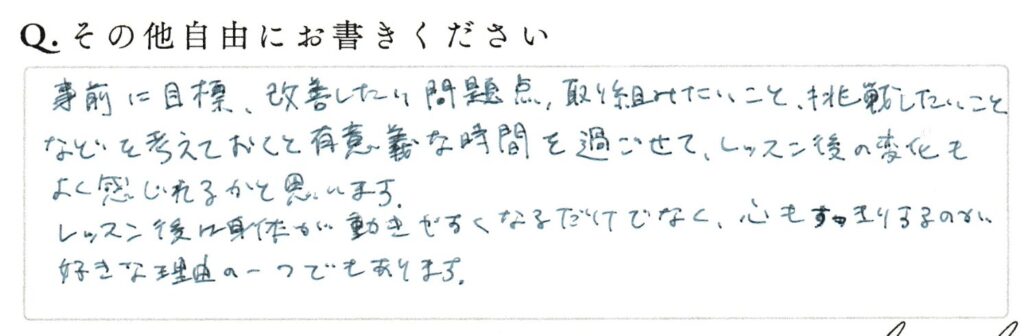 Q. その他自由にお書きください
事前に目標、改善したい問題点、取り組みたいこと、挑戦したいこと
などを考えておくと有意義な時間を過ごせて、レッスン後の変化も
よく感じれるかと思います。
レッスン後は身体が動きやすくなるだけでなく、心もすっきりするのが
好きな理由の一つでもあります。